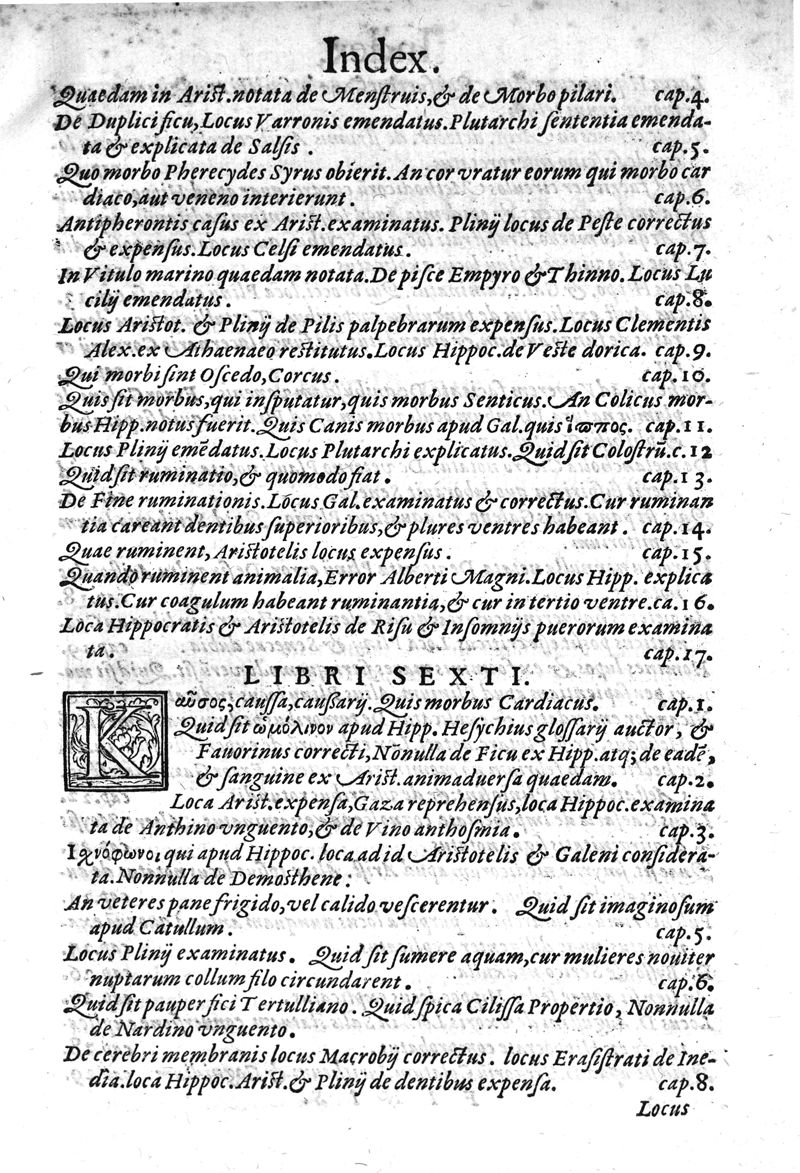 Index.
Quaedam in Arist. notata de Menstruis, & de Morbo pilari. cap.4.
De Duplici ficu, Locus Varronis emendatus. Plutarchi sententia emenda-
ta & explicata de Salsis . cap.5.
Quo morbo Pherecydes Syrus obierit. An cor vratur eorum qui morbo car
diaco, aut veneno interierunt . cap.6.
Antipherontis casus ex Arist. examinatus. Plinij locus de Peste correctus
& expensus. Locus Celsi emendatus . cap.7.
In Vitulo marino quaedam notata. De pisce Empyro & Thinno. Locus Lu
cilij emendatus . cap.8.
Locus Aristot. & Plinij de Pilis palpebrarum expensus. Locus Clementis
Alex. ex Athaenaeo restitutus. Locus Hippoc. de Veste dorica. cap.9.
Qui morbi sint Oscedo, Corcus . cap.10.
Quis sit morbus, qui insputatur, quis morbus Senticus. An Colicus mor-
bus Hipp. notus fuerit. Quis Canis morbus apud Gal. quis ἵωπος. cap.11.
Locus Plinij emēdatus. Locus Plutarchi explicatus. Quid sit Colostrũ. c.12
Quid sit ruminatio, & quomodo fiat . cap.13.
De Fine ruminationis. Locus Gal. examinatus & correctus. Cur ruminan
tia careant dentibus superioribus, & plures ventres habeant . cap.14.
Quae ruminent, Aristotelis locus expensus . cap.15.
Quando ruminent animalia, Error Alberti Magni. Locus Hipp. explica
tus. Cur coagulum habeant ruminantia, & cur in tertio ventre. ca.16.
Loca Hippocratis & Aristotelis de Risu & Insomnijs puerorum examina
ta . cap.17.
LIBRI SEXTI.
Καῦσος, caussa, caussarij. Quis morbus Cardiacus. cap.1.
Quid sit ὠμόλινον apud Hipp. Hesychius glossarij auctor, &
Fauorinus correcti, Nōnulla de Ficu ex Hipp. atq; de eadē,
& sanguine ex Arist. animaduersa quaedam. cap.2.
Loca Arist. expensa, Gaza reprehensus, loca Hippoc. examina
ta de Anthino vnguento, & de Vino anthosmia . cap.3.
Ἰχνόφωνοι qui apud Hippoc. loca ad id Aristotelis & Galeni considera-
ta. Nonnulla de Demosthene :
An veteres pane frigido, vel calido vescerentur . Quid sit imaginosum
apud Catullum . cap.5.
Locus Plinij examinatus . Quid sit sumere aquam, cur mulieres noviter
nuptarum collum filo circundarent . cap.6.
Quid sit pauper fici Tertulliano . Quid spica Cilissa Propertio , Nonnulla
de Nardino vnguento .
De cerebri membranis locus Macrobij correctus . locus Erasistrati de Ine-
dia. loca Hippoc. Arist. & Plinij de dentibus expensa. cap.8.
Locus